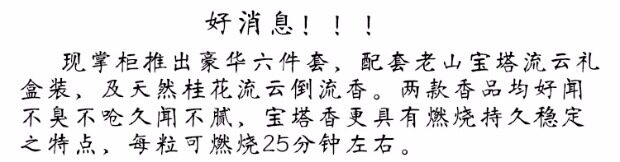 好消息！！！
现掌柜推出豪华六件套，配套老山宝塔流云礼
盒装，及天然桂花流云倒流香。两款香品均好闻
不臭不呛久闻不腻，宝塔香更具有燃烧持久稳定
之特点，每粒可燃烧25分钟左右。